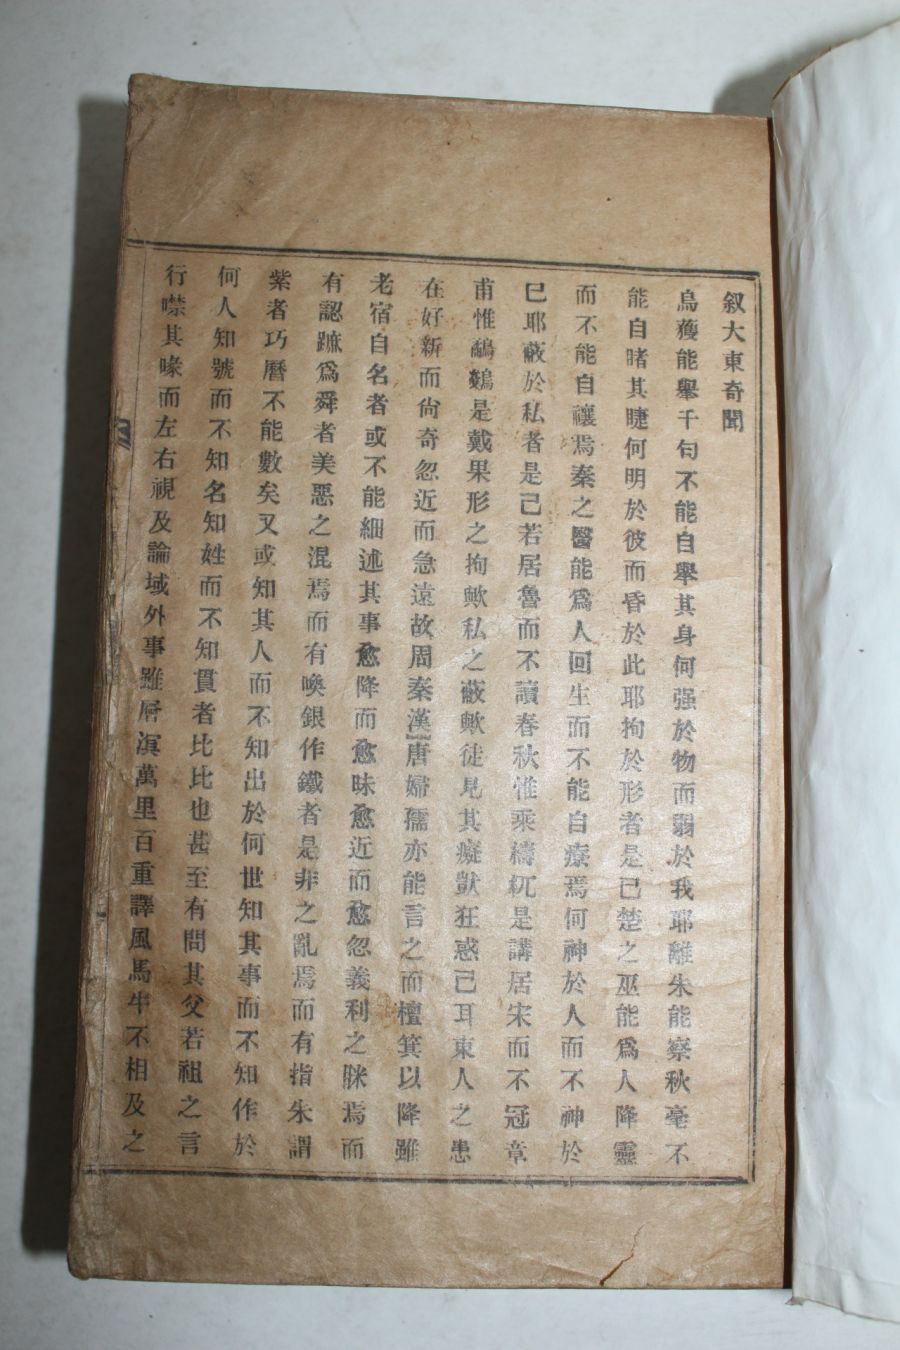 叙大東奇聞
烏獲能擧千句不能自擧其身何强於物而弱於我耶離朱能察秋毫不
能自睹其睫何明於彼而昏於此耶拘於形者是已楚之巫能爲人降靈
而不能自禳焉秦之醫能爲人回生而不能自療焉何神於人而不神於
巳耶蔽於私者是已若居魯而不讀春秋惟乘檮杌是講居宋而不冠章
甫惟鷸鷄是戴果形之拘歟私之蔽歟徒見其癡獃狂惑已耳東人之患
在好新而尙奇忽近而急遠故周秦漢唐婦孺亦能言之而檀箕以降雖
老宿自名者或不能細述其事愈降而愈昧愈近而愈忽義利之眯焉而
有認蹠爲舜者美惡之混焉而有喚銀作鐵者是非之亂焉而有指朱謂
紫者巧曆不能數矣又或知其人而不知出於何世知其事而不知作於
何人知號而不知名知姓而不知貫者比比也甚至有問其父若祖之言
行噤其喙而左右視及論域外事雖屑溟萬里百重譯風馬牛不相及之